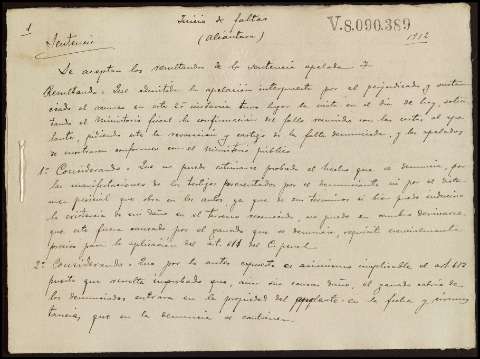 1
Juicio de faltas
V.8.090.389
(Alcántara)
1912
Sentencia
Se aceptan los resultandos de la sentencia apelada y
Resultando - Que admitida la apelación interpuesta por el perjudicado, y sustan-
ciado el recurso en esta 2ª instancia tuvo lugar la vista en el día de hoy, solici-
tando el Ministerio fiscal la confirmación del fallo recurrido con las costas al ape-
lante, pidiendo este la revocación y castigo de la falta denunciada, y los apelados
se mostraron conformes con el Ministerio público
1º Considerando - Que no puede estimarse probado el hecho que se denuncia, por
las manifestaciones de los testigos presentados por el denunciante ni por el dicta-
men pericial que obra en los autos, ya que de sus términos si bien puede inducirse
la existencia de un daño en el terreno reconocido, no puede en cambio derivarse
que este fuera causado por el ganado que se denuncia, requisito esencialmente
preciso para la aplicación del art. 611 del C. penal.
2º Considerando - Que por lo antes expuesto es asimismo inaplicable el art. 613
puesto que resulta improbado que, aun sin causar daño, el ganado cabrío de
los denunciados entrara en la propiedad del apelante en la fecha y circuns-
tancias, que en la denuncia se contienen.